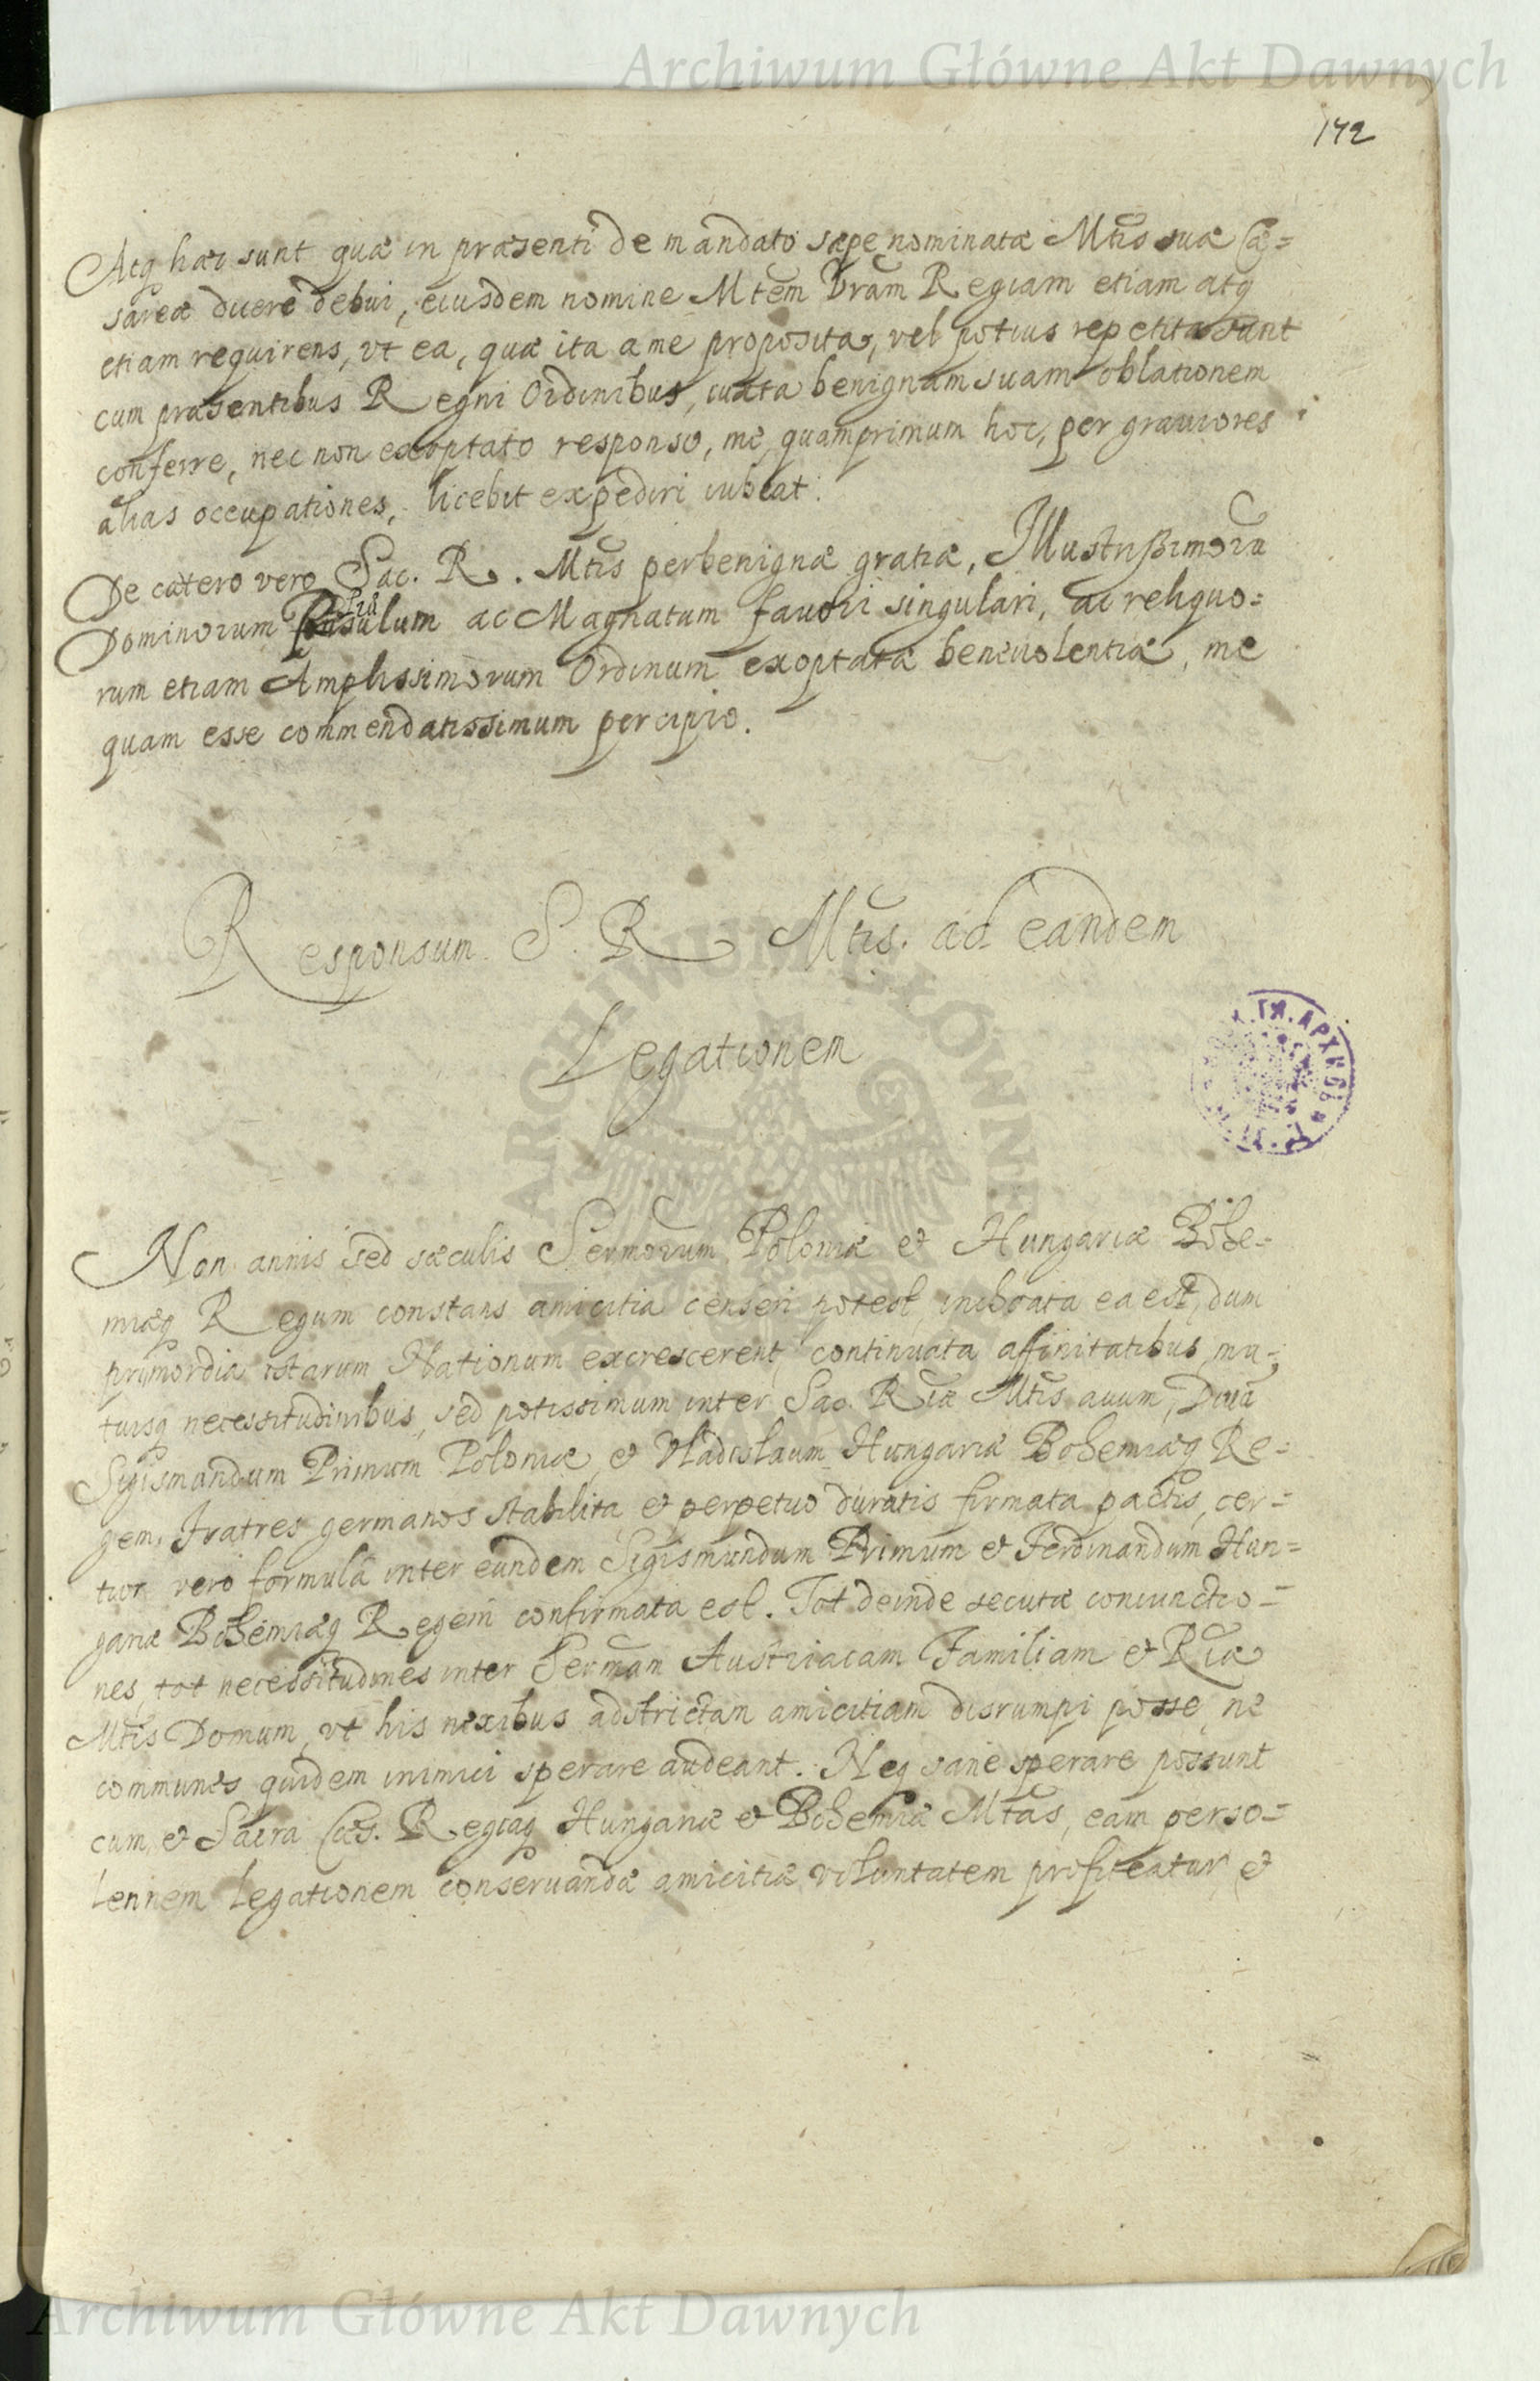 Archiwum Główne Akt Dawnych
172
Atq hæc sunt quæ in præsenti de mandato sæpe nominatæ Mtis suæ Cæ=
sareæ dicere debui, eiusdem nomine Mtem Vram Regiam etiam atq
etiam requirens, vt ea, quæ ita a me proposita, vel potius repetita sunt
cum præsentibus Regni Ordinibus, iuxta benignam suam oblationem
conferre, nec non exoptato responso, me quamprimum hoc, per grauiores
alias occupationes, licebit expediri iubeat.
De cætero vero Sac. R. Mtis perbenignæ gratiæ, Illustrißimoru
Dominorum Præsulum ac Magnatum fauori singulari, ac reliquo=
rum etiam Amplissimorum Ordinum exoptatæ beneuolentiæ, me
quam esse commendatissimum percipio.
Responsum S. R. Mtis. ad eandem
Legationem
Non annis sed sæculis Sermorum Poloniæ et Hungariæ Bohe=
miæq Regum constans amicitia censeri potest, inchoata ea est, dum
primordia istarum Nationum excrescerent, continuata affinitatibus, mu=
tuisq necessitudinibus, sed potissimum inter Sac. Riæ Mtis auum, Diuu
Sigismundum Primum Poloniæ, et Vladislaum Hungariæ Bohemiæq Re=
gem, Fratres germanos stabilita, et perpetuo duratis firmata pactis, cer=
tior vero formula inter eundem Sigismundum Primum et Ferdinandum Hun=
gariæ Bohemiæq Regem confirmata est. Tot deinde secutæ coniunctio=
nes, tot necessitudines inter Sermam Austriacam Familiam et Riæ
Mtis Domum, vt his nexibus adstrictam amicitiam disrumpi posse, ne
communes quidem inimici sperare audeant. Neq sane sperare possunt
cum, et Sacra Cæs. Regiaq Hungariæ et Bohemiæ Mtas, eam per so=
lennem legationem conseruandæ amicitiæ voluntatem profiteatur, et
Archiwum Główne Akt Dawnych